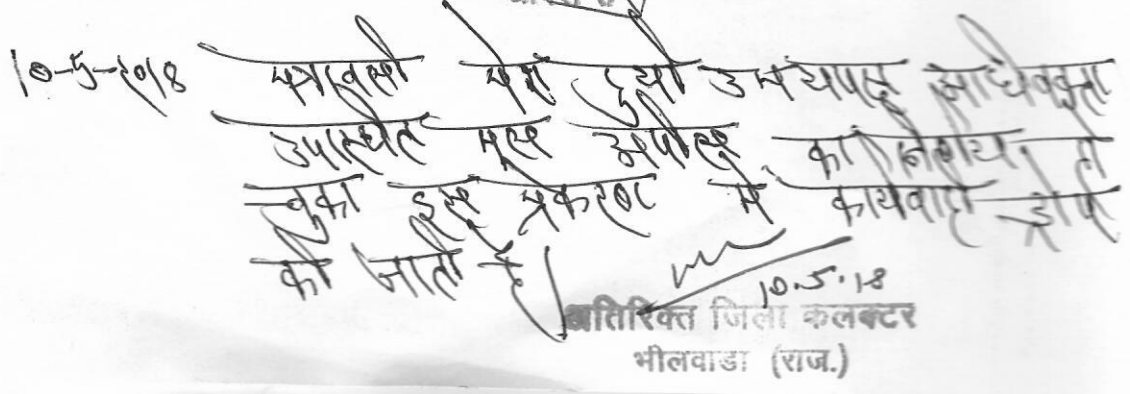 10-5-2018 पत्रावली पेश हुयी उभयपक्ष अधिवक्ता
उपस्थित मूल अपील का निर्णय हो
चुका इस प्रकरण में कार्यवाही ड्रोप
की जाती है।
10.5.18
अतिरिक्त जिला कलक्टर
भीलवाडा (राज.)